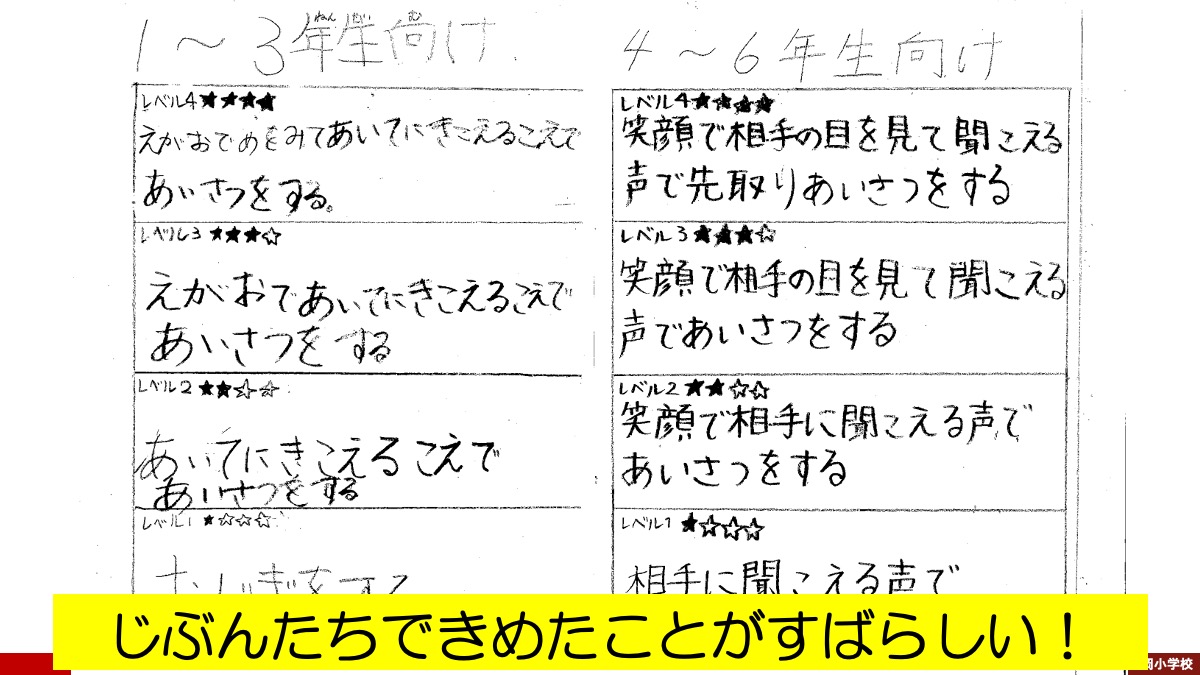 1～3年生向け
ねんせいむ
レベル4★★★★
えがおでめをみてあいてにきこえるこえで
あいさつをする。
レベル3★★★☆
えがおであいてにきこえるこえで
あいさつをする
レベル2★★☆☆
あいてにきこえるこえで
あいさつをする
レベル1★☆☆☆
おじぎをする
4～6年生向け
レベル4★★★★
笑顔で相手の目を見て聞こえる
声で先取りあいさつをする
レベル3★★★☆
笑顔で相手の目を見て聞こえる
声であいさつをする
レベル2★★☆☆
笑顔で相手に聞こえる声で
あいさつをする
レベル1★☆☆☆
相手に聞こえる声で
じぶんたちできめたことがすばらしい！
小学校